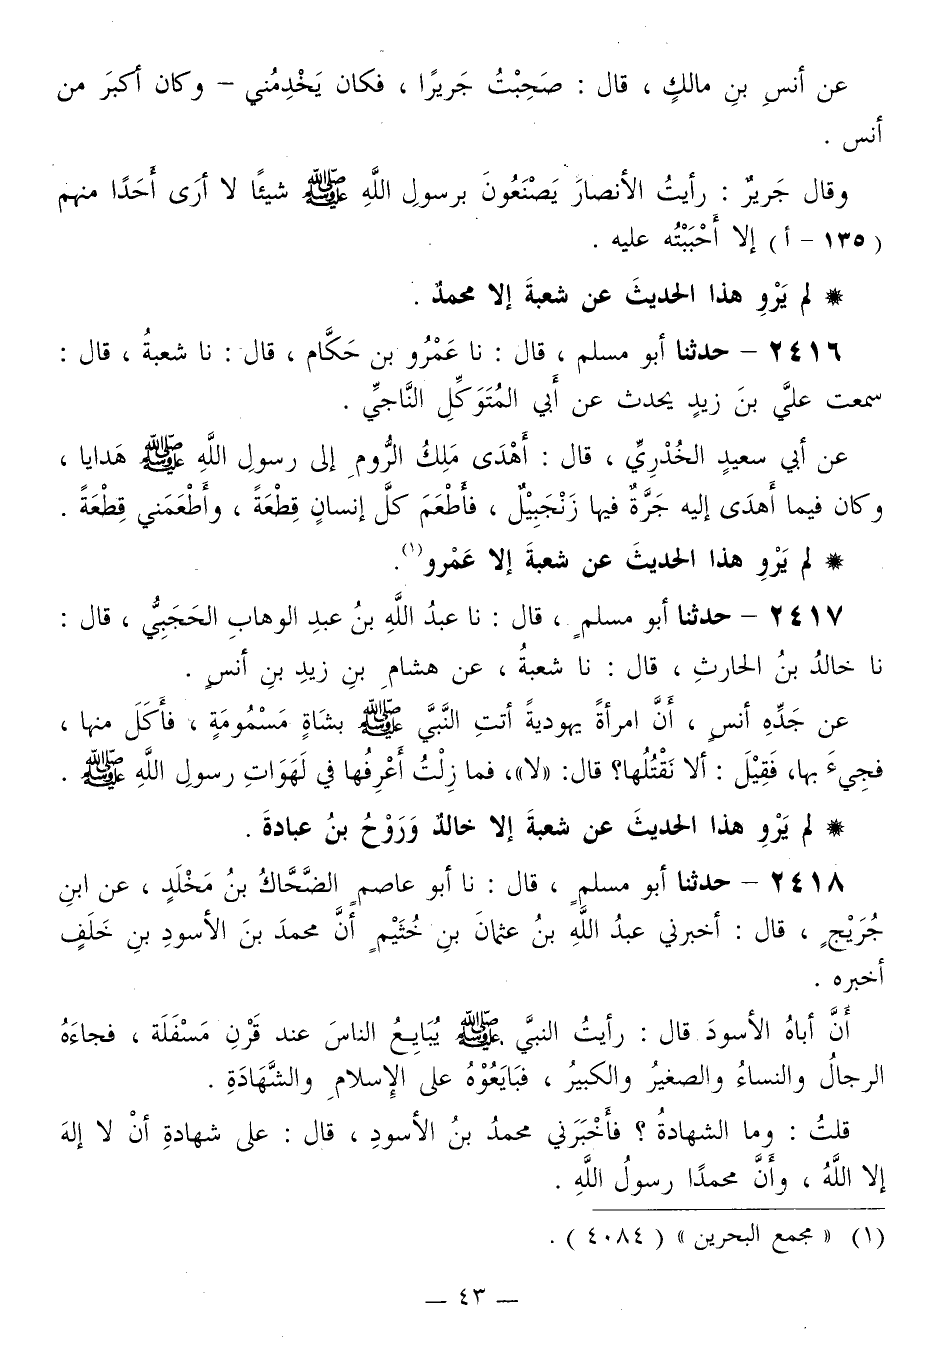 عن أنسِ بنِ مالكٍ ، قال : صَحِبْتُ جَرِيرًا ، فكان يَخْدِمُني – وكان أكبرَ من
أنس .
وقال جَريرٌ : رأيتُ الأنصارَ يَصْنَعُونَ برسولِ اللَّهِ ﷺ شيئًا لا أرَى أَحَدًا منهم
( ١٣٥ – أ ) إلا أَحْبَبْتُه عليه .
* لم يَرْوِ هذا الحديثَ عن شعبةَ إلا محمدٌ .
٢٤١٦ – حدثنا أبو مسلم ، قال : نا عَمْرُو بن حَكَّام ، قال : نا شعبةُ ، قال :
سمعت عليَّ بنَ زيدٍ يحدث عن أَبي المُتَوَكِّلِ النَّاجيِّ .
عن أبي سعيدٍ الخُدْريِّ ، قال : أَهْدَى مَلِكُ الرُّومِ إلى رسولِ اللَّهِ ﷺ هَدايا ،
وكان فيما أَهدَى إليه جَرَّةٌ فيها زَنْجَبِيْلٌ ، فأَطْعَمَ كلَّ إنسانٍ قِطْعَةً ، وأَطْعَمَني قِطْعَةً .
* لم يَرْوِ هذا الحديثَ عن شعبةَ إلا عَمْرو(١).
٢٤١٧ – حدثنا أبو مسلمٍ ، قال : نا عبدُ اللَّهِ بنُ عبدِ الوهابِ الحَجَبِيُّ ، قال :
نا خالدُ بنُ الحارثِ ، قال : نا شعبةُ ، عن هشامِ بنِ زيدِ بنِ أنسٍ .
عن جَدِّهِ أنسٍ ، أَنَّ امرأةً يهوديةً أتتِ النَّبيَّ ﷺ بشَاةٍ مَسْمُومَةٍ ، فأَكَلَ منها ،
فجِيءَ بها، فَقِيْلَ : ألا نَقْتُلُها؟ قال: «لا»، فما زِلْتُ أَعْرِفُها في لَهَوَاتِ رسولِ اللَّهِ ﷺ .
* لم يَرْوِ هذا الحديثَ عن شعبةَ إلا خالدٌ وَرَوْحُ بنُ عبادةَ .
٢٤١٨ – حدثنا أبو مسلمٍ ، قال : نا أبو عاصمٍ الضَّحَّاكُ بنُ مَخْلَدٍ ، عن ابنِ
جُرَيْجٍ ، قال : أخبرني عبدُ اللَّهِ بنُ عثمانَ بنِ خُثَيْمٍ أنَّ محمدَ بنَ الأسودِ بنِ خَلَفٍ
أخبره .
أَنَّ أباهُ الأسودَ قال : رأيتُ النبيَّ ﷺ يُبَايِعُ الناسَ عند قَرْنِ مَسْفَلَة ، فجاءَهُ
الرجالُ والنساءُ والصغيرُ والكبيرُ ، فبَايَعُوْهُ على الإسلامِ والشَّهَادَةِ .
قلتُ : وما الشهادةُ ؟ فأَخْبَرَني محمدُ بنُ الأسودِ ، قال : على شهادةِ أنْ لا إلهَ
إلا اللَّهُ ، وأَنَّ محمدًا رسولُ اللَّهِ .
(١) « مجمع البحرين » ( ٤٠٨٤ ) .
– ٤٣ –